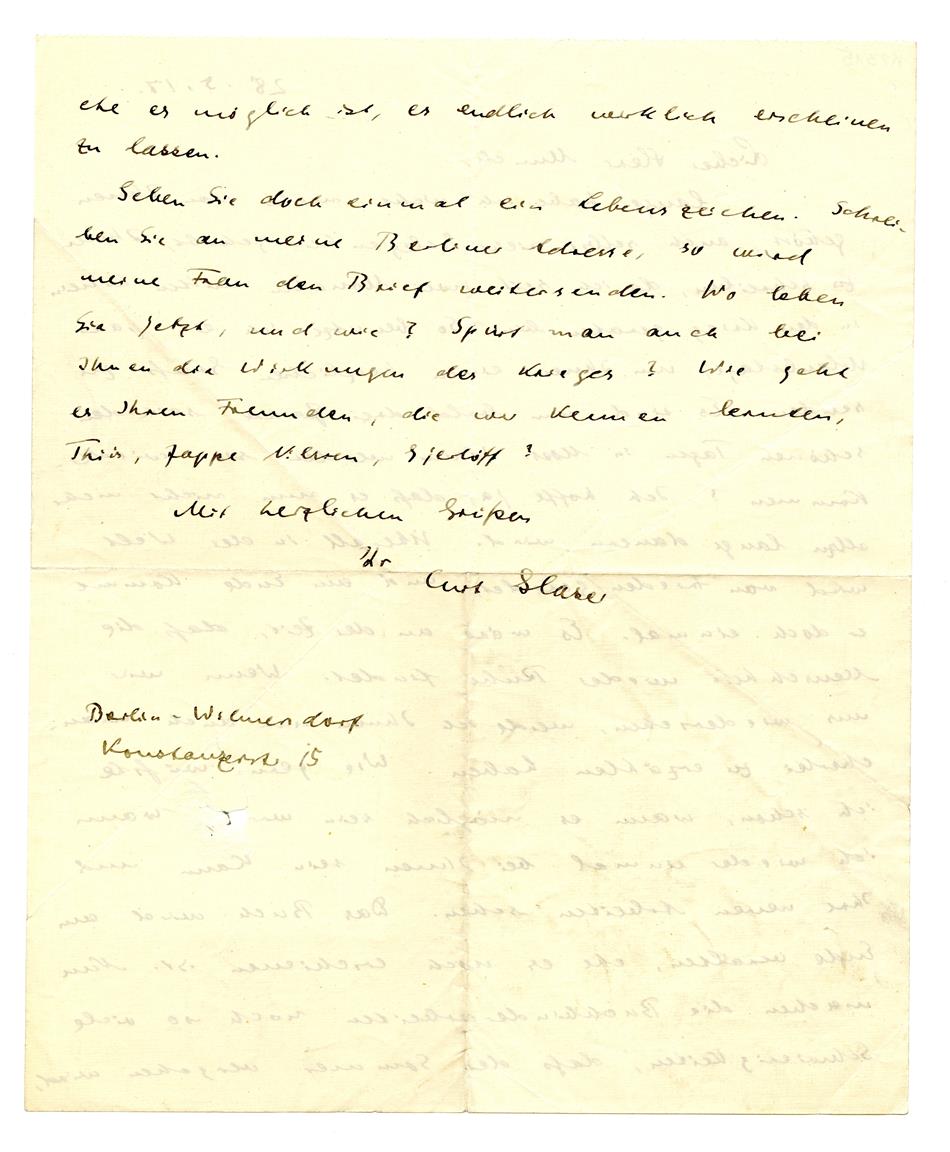 ehe es möglich ist, es endlich wirklich erscheinen
zu lassen.
Geben Sie doch einmal ein Lebenszeichen. Schrei-
ben Sie an meine Berliner Adresse, so wird
meine Frau den Brief weitersenden. Wo leben
Sie jetzt, und wie? Spürt man auch bei
Ihnen die Wirkungen des Krieges? Wie geht
es Ihren Freunden, die wir kennen lernten,
Thiis, Jappe Nilssen, Gierløff?
Mit herzlichen Grüßen
Ihr
Curt Glaser
Berlin-Wilmersdorf
Konstanzerstr 15